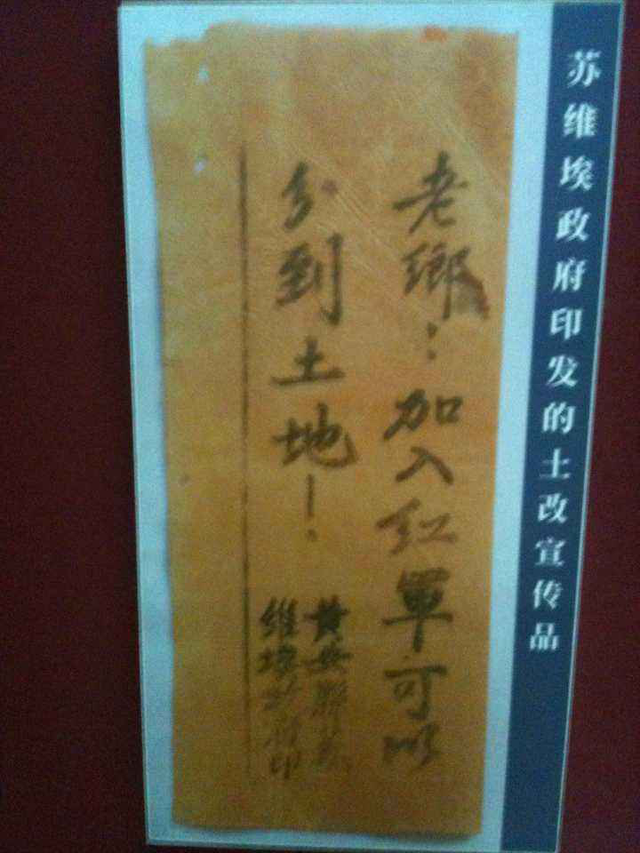 苏维埃政府印发的土改宣传品
老鄉：加入红軍可以
分到土地！
黄安縣苏
维埃政府印